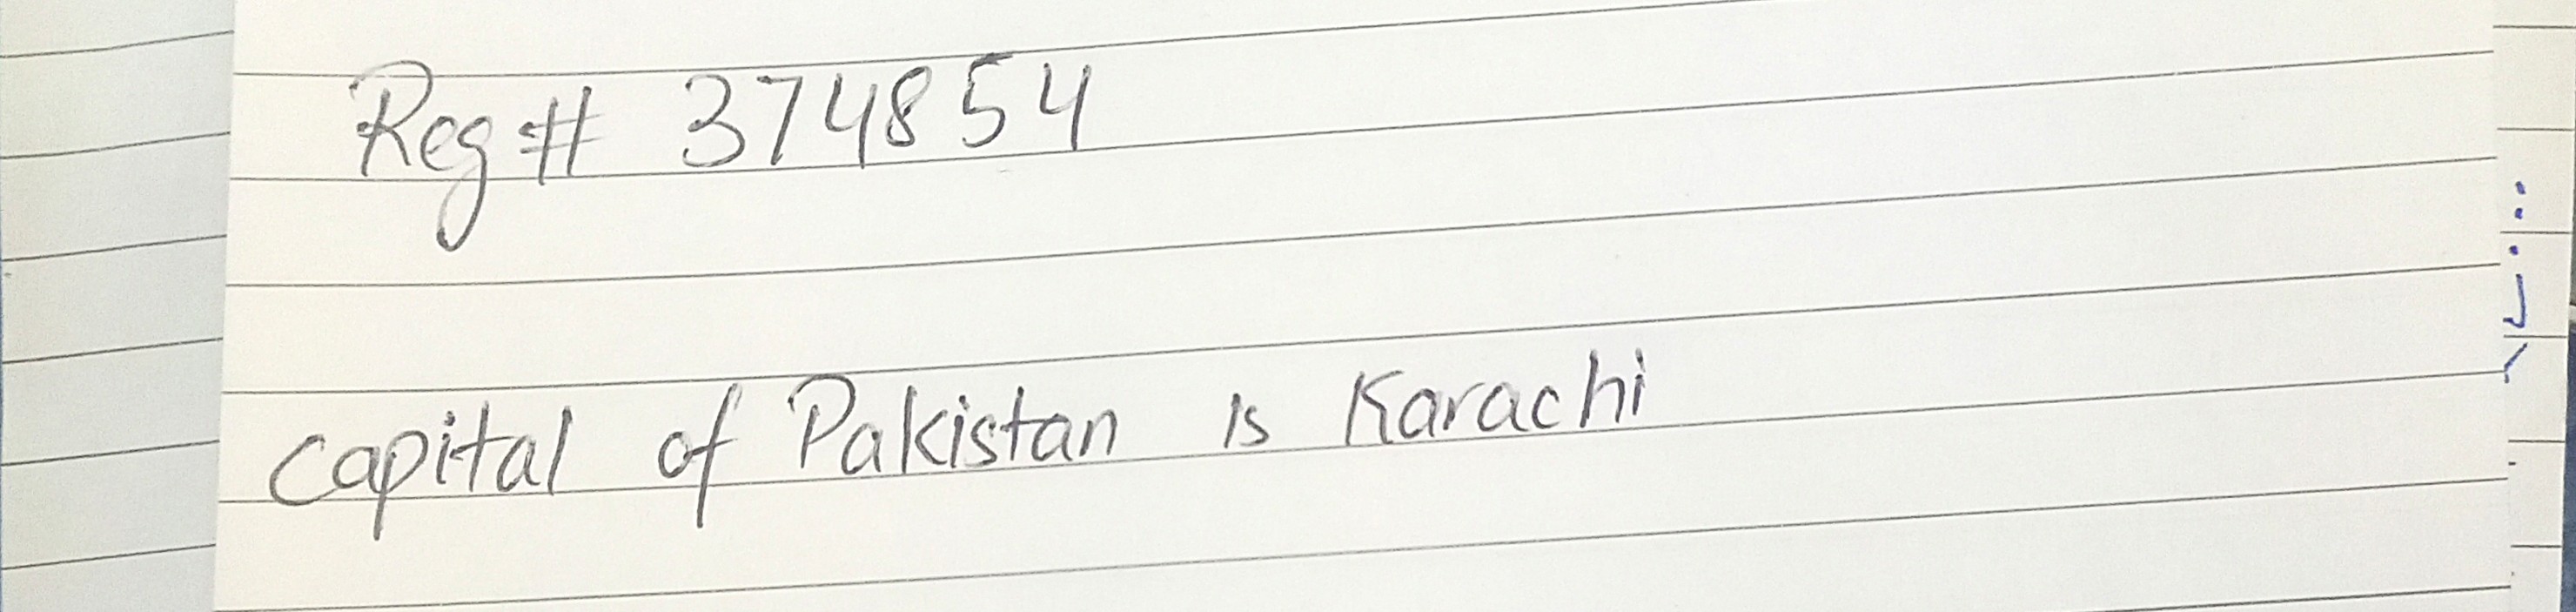 Reg # 374854
capital of Pakistan is Karachi